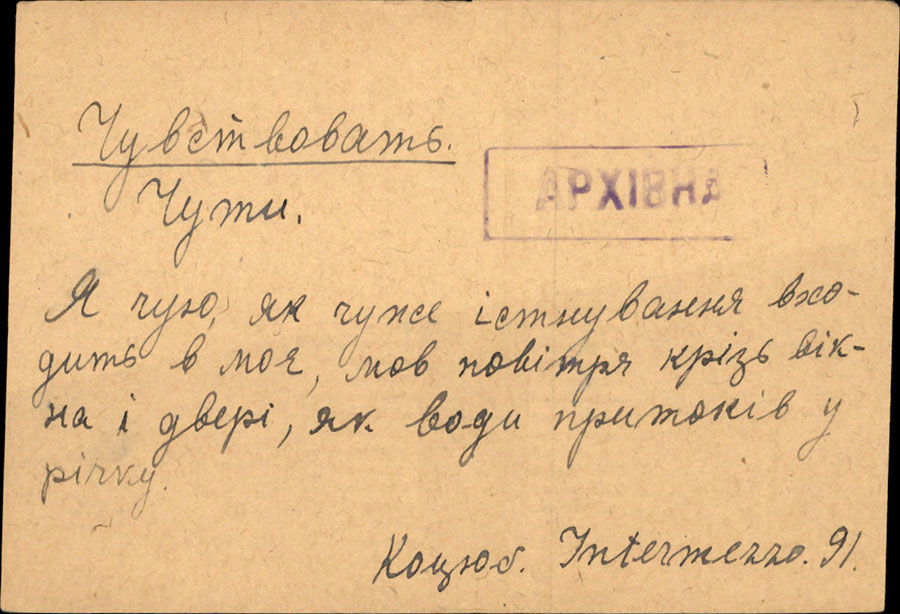 Чувствовать.
АРХІВНА
Чути.
Я чую, як чуже істнування вхо-
дить в моє, мов повітря крізь вік-
на і двері, як води притоків у
річку.
Коцюб. Intermezzo. 91.